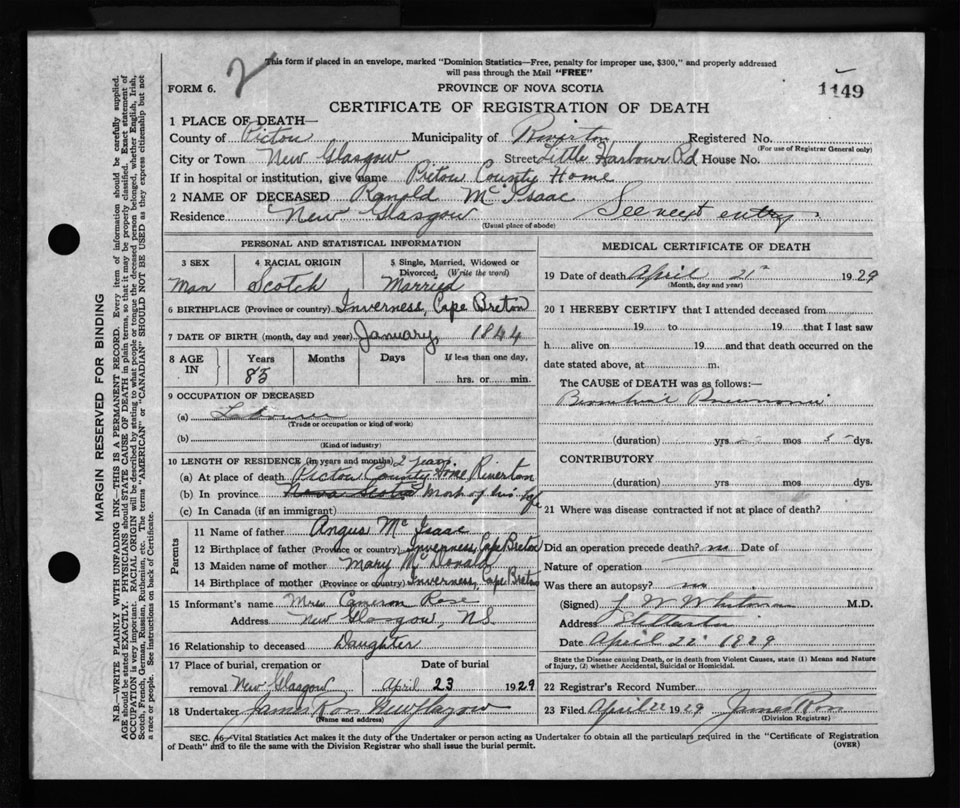 This form if placed in an envelope, marked "Dominion Statistics—Free, penalty for improper use, $300," and properly addressed
will pass through the Mail "FREE"
2
FORM 6.
PROVINCE OF NOVA SCOTIA
1149
CERTIFICATE OF REGISTRATION OF DEATH
1 PLACE OF DEATH—
County of Pictou Municipality of Riverton Registered No.
(For use of Registrar General only)
City or Town New Glasgow Street Little Harbour Rd House No.
If in hospital or institution, give name Pictou County Home
2 NAME OF DECEASED Ranold McIsaac
Residence New Glasgow See next entry
(Usual place of abode)
PERSONAL AND STATISTICAL INFORMATION
3 SEX
Man
4 RACIAL ORIGIN
Scotch
5 Single, Married, Widowed or
Divorced, (Write the word)
Married
6 BIRTHPLACE (Province or country) Inverness, Cape Breton
7 DATE OF BIRTH (month, day and year) January, 1844
8 AGE IN
Years Months Days If less than one day,
85
hrs. or min.
9 OCCUPATION OF DECEASED
(a) Labourer
(Trade or occupation or kind of work)
(b)
(Kind of industry)
10 LENGTH OF RESIDENCE (in years and months) 2 years
(a) At place of death Pictou County Home Riverton
(b) In province Nova Scotia Most of his life
(c) In Canada (if an immigrant)
Parents
11 Name of father Angus McIsaac
12 Birthplace of father (Province or country) Inverness, Cape Breton
13 Maiden name of mother Mary McDonald
14 Birthplace of mother (Province or country) Inverness, Cape Breton
15 Informant's name Mrs Cameron Rose
Address New Glasgow, NS
16 Relationship to deceased Daughter
17 Place of burial, cremation or Date of burial
removal New Glasgow April 23 1929
18 Undertaker James Ross New Glasgow
(Name and address)
MEDICAL CERTIFICATE OF DEATH
19 Date of death April 21st 1929
(Month, day and year)
20 I HEREBY CERTIFY that I attended deceased from
19 to 19 that I last saw
h alive on 19 and that death occurred on the
date stated above, at m.
The CAUSE of DEATH was as follows:—
Bronchial Pneumonia
(duration) yrs mos dys.
CONTRIBUTORY
(duration) yrs mos dys.
21 Where was disease contracted if not at place of death?
Did an operation precede death? no Date of
Nature of operation
Was there an autopsy? no
(Signed) J W Whitman M.D.
Address Stellarton
Date April 22 1929
State the Disease causing Death, or in death from Violent Causes, state (1) Means and Nature
of Injury, (2) whether Accidental, Suicidal or Homicidal.
22 Registrar's Record Number
23 Filed April 22 1929 James Ross
(Division Registrar)
SEC. 46—Vital Statistics Act makes it the duty of the Undertaker or person acting as Undertaker to obtain all the particulars required in the "Certificate of Registration
of Death" and to file the same with the Division Registrar who shall issue the burial permit.
(OVER)
MARGIN RESERVED FOR BINDING
N.B.—WRITE PLAINLY WITH UNFADING INK—THIS IS A PERMANENT RECORD. Every item of information should be carefully supplied.
AGE should be stated EXACTLY. PHYSICIANS should STATE CAUSE OF DEATH in plain terms, so that it may be properly classified. Exact statement of
OCCUPATION is very important. RACIAL ORIGIN will be described by stating to what people or tongue the deceased person belonged, whether English, Irish,
Scotch, French, German, Russian, Ruthenian, etc. The terms "AMERICAN" or "CANADIAN" SHOULD NOT BE USED as they express citizenship but not
a race or people. See instructions on back of Certificate.